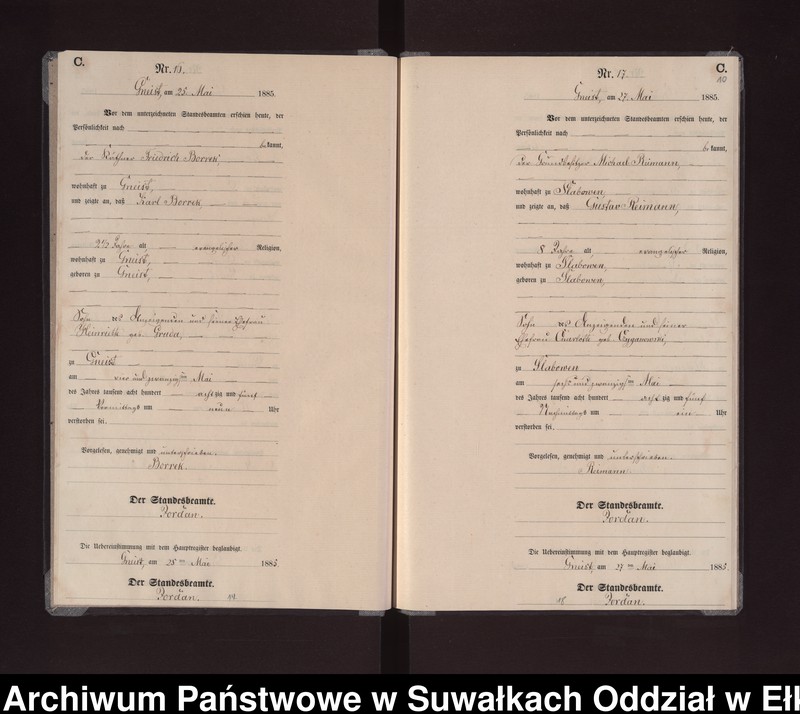 C.
Nr. 16.
Gneist, am 25. Mai 1885.
Vor dem unterzeichneten Standesbeamten erschien heute, der
Persönlichkeit nach
bekannt,
der Käthner Friedrich Borrek
wohnhaft zu Gneist,
und zeigte an, daß Karl Borrek
2½ Jahre alt evangelischer Religion,
wohnhaft zu Gneist,
geboren zu Gneist,
Sohn des Anzeigenden und seiner Ehefrau
geb.
zu Gneist
am vier und zwanzigsten Mai
des Jahres tausend acht hundert achtzig und fünf
Vormittags um neun Uhr
verstorben sei.
Vorgelesen, genehmigt und unterschrieben.
Borrek.
Der Standesbeamte.
Jordan.
Die Uebereinstimmung mit dem Hauptregister beglaubigt.
Gneist, am 25ten Mai 1885.
Der Standesbeamte.
Jordan.
C.
10
Nr. 17.
Gneist, am 27. Mai 1885.
Vor dem unterzeichneten Standesbeamten erschien heute, der
Persönlichkeit nach
bekannt,
der Grundbesitzer Michael Reimann,
wohnhaft zu Slabowen,
und zeigte an, daß Gustav Reimann,
8 Jahre alt evangelischer Religion,
wohnhaft zu Slabowen,
geboren zu Slabowen,
Sohn des Anzeigenden und seiner
Ehefrau Charlotte geb. Czyganowski,
zu Slabowen
am sechs und zwanzigsten Mai
des Jahres tausend acht hundert achtzig und fünf
Nachmittags um ein Uhr
verstorben sei.
Vorgelesen, genehmigt und unterschrieben.
Reimann
Der Standesbeamte.
Jordan.
Die Uebereinstimmung mit dem Hauptregister beglaubigt.
Gneist, am 27ten Mai 1885.
Der Standesbeamte.
Jordan.
Archiwum Państwowe w Suwałkach Oddział w Ełk